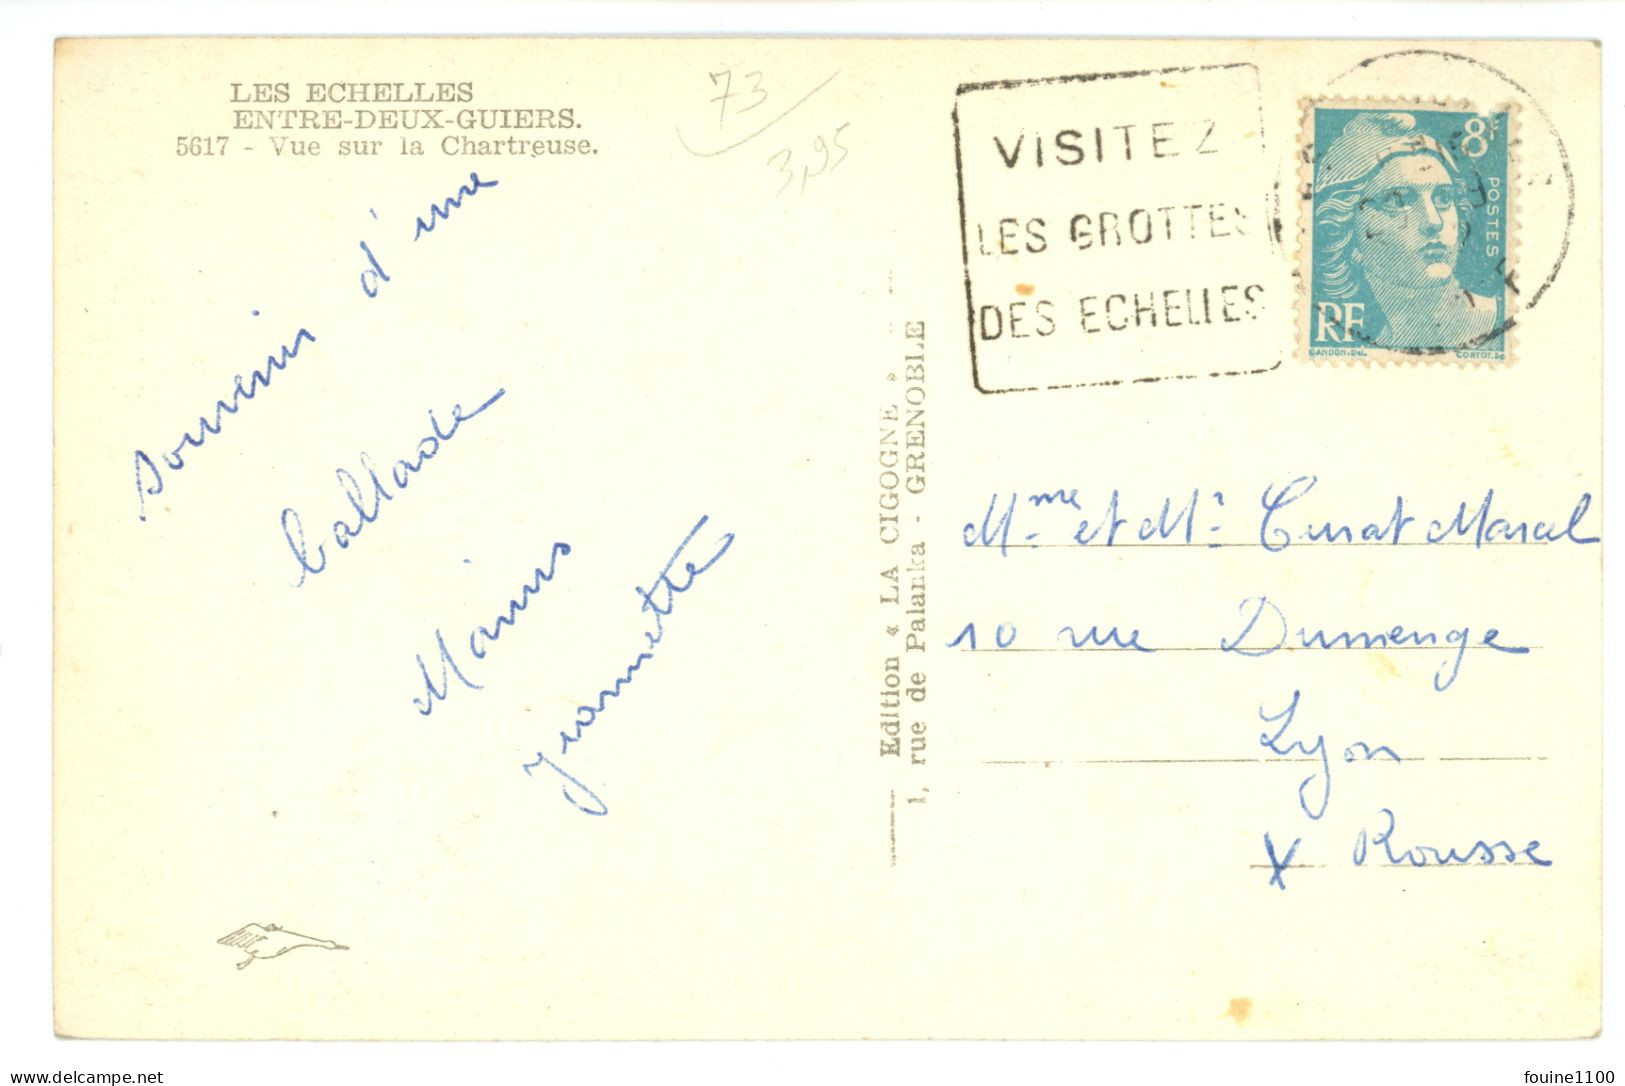 LES ECHELLES
ENTRE-DEUX-GUIERS.
5617 - Vue sur la Chartreuse.
73
3,95
souvenir d'une
ballade
Marius
Jeannette
Edition « LA CIGOGNE »
1, rue de Palanka - GRENOBLE
VISITEZ
LES GROTTES
DES ECHELLES
8F
POSTES
RF
GANDON. Del.
CORTOT. Sc
Mme et Mr Curat Marcel
10 rue Dumenge
Lyon
X Rousse
delcampe.net
fouine1100